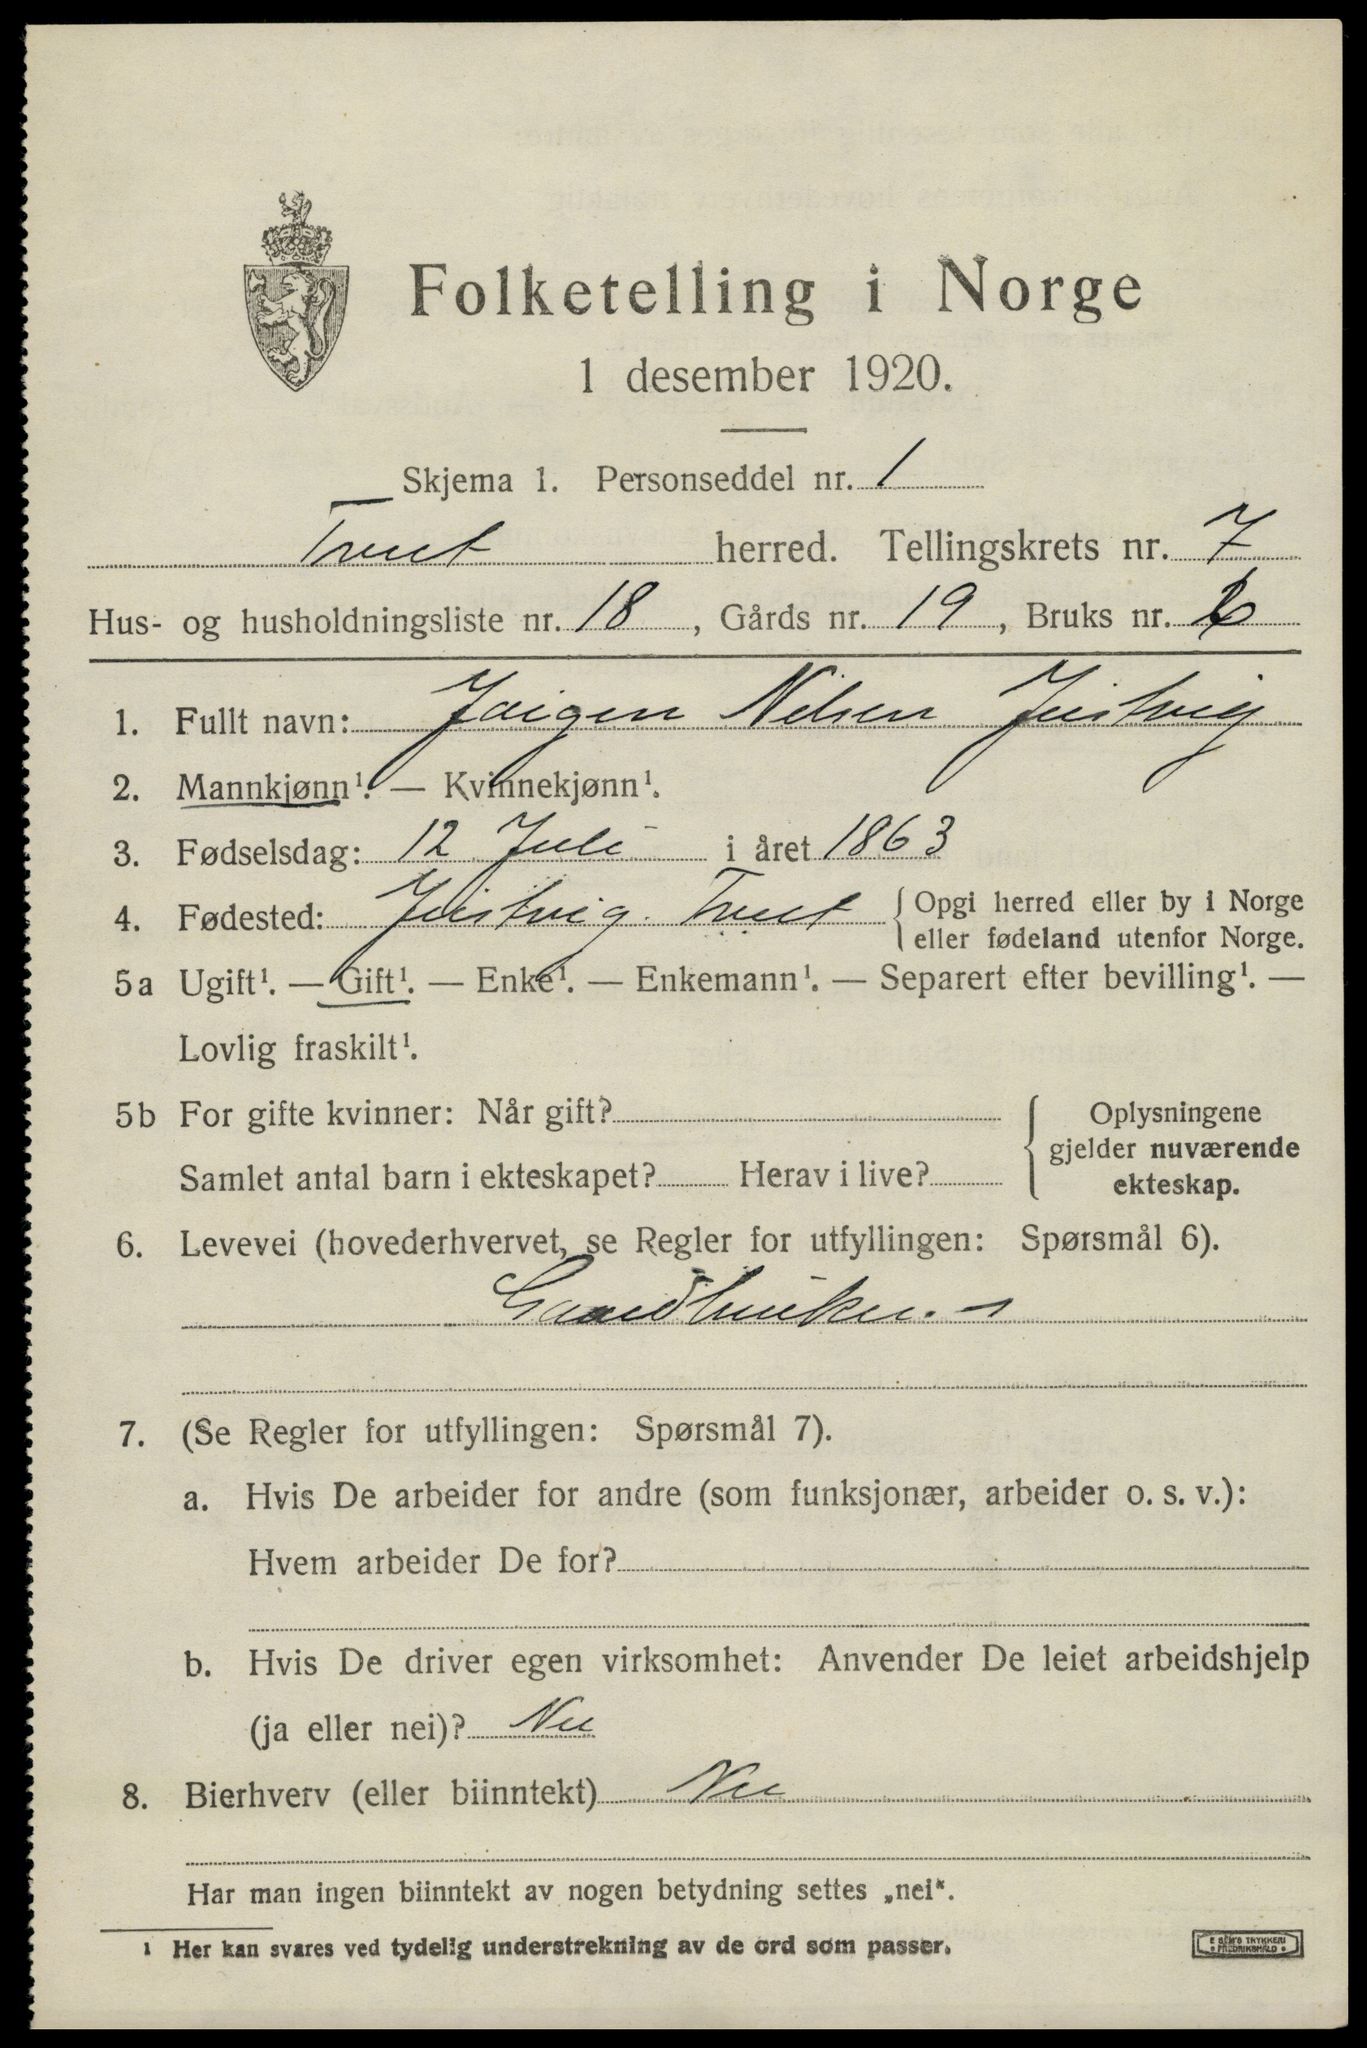 Folketelling i Norge
1 desember 1920.
Skjema 1. Personseddel nr. 1
Tveit herred. Tellingskrets nr. 7
Hus- og husholdningsliste nr. 18, Gårds nr. 19, Bruks nr.
1. Fullt navn: Jørgen Nilsen Justvig
2. Mannkjønn¹. — Kvinnekjønn¹.
3. Fødselsdag: 12 Juli i året 1863
4. Fødested: Justvig Tveit { Opgi herred eller by i Norge
eller fødeland utenfor Norge.
5a Ugift¹. — Gift¹. — Enke¹. — Enkemann¹. — Separert efter bevilling¹. —
Lovlig fraskilt¹.
5b For gifte kvinner: Når gift?
Samlet antal barn i ekteskapet? Herav i live?
Oplysningene
gjelder nuværende
ekteskap.
6. Levevei (hovederhvervet, se Regler for utfyllingen: Spørsmål 6).
Gaardbruker.
7. (Se Regler for utfyllingen: Spørsmål 7).
a. Hvis De arbeider for andre (som funksjonær, arbeider o. s. v.):
Hvem arbeider De for?
b. Hvis De driver egen virksomhet: Anvender De leiet arbeidshjelp
(ja eller nei)? Nei
8. Bierhverv (eller biinntekt) Nei
Har man ingen biinntekt av nogen betydning settes „nei“.
¹ Her kan svares ved tydelig understrekning av de ord som passer.
E SEM'S TRYKKERI
FREDRIKSHALD